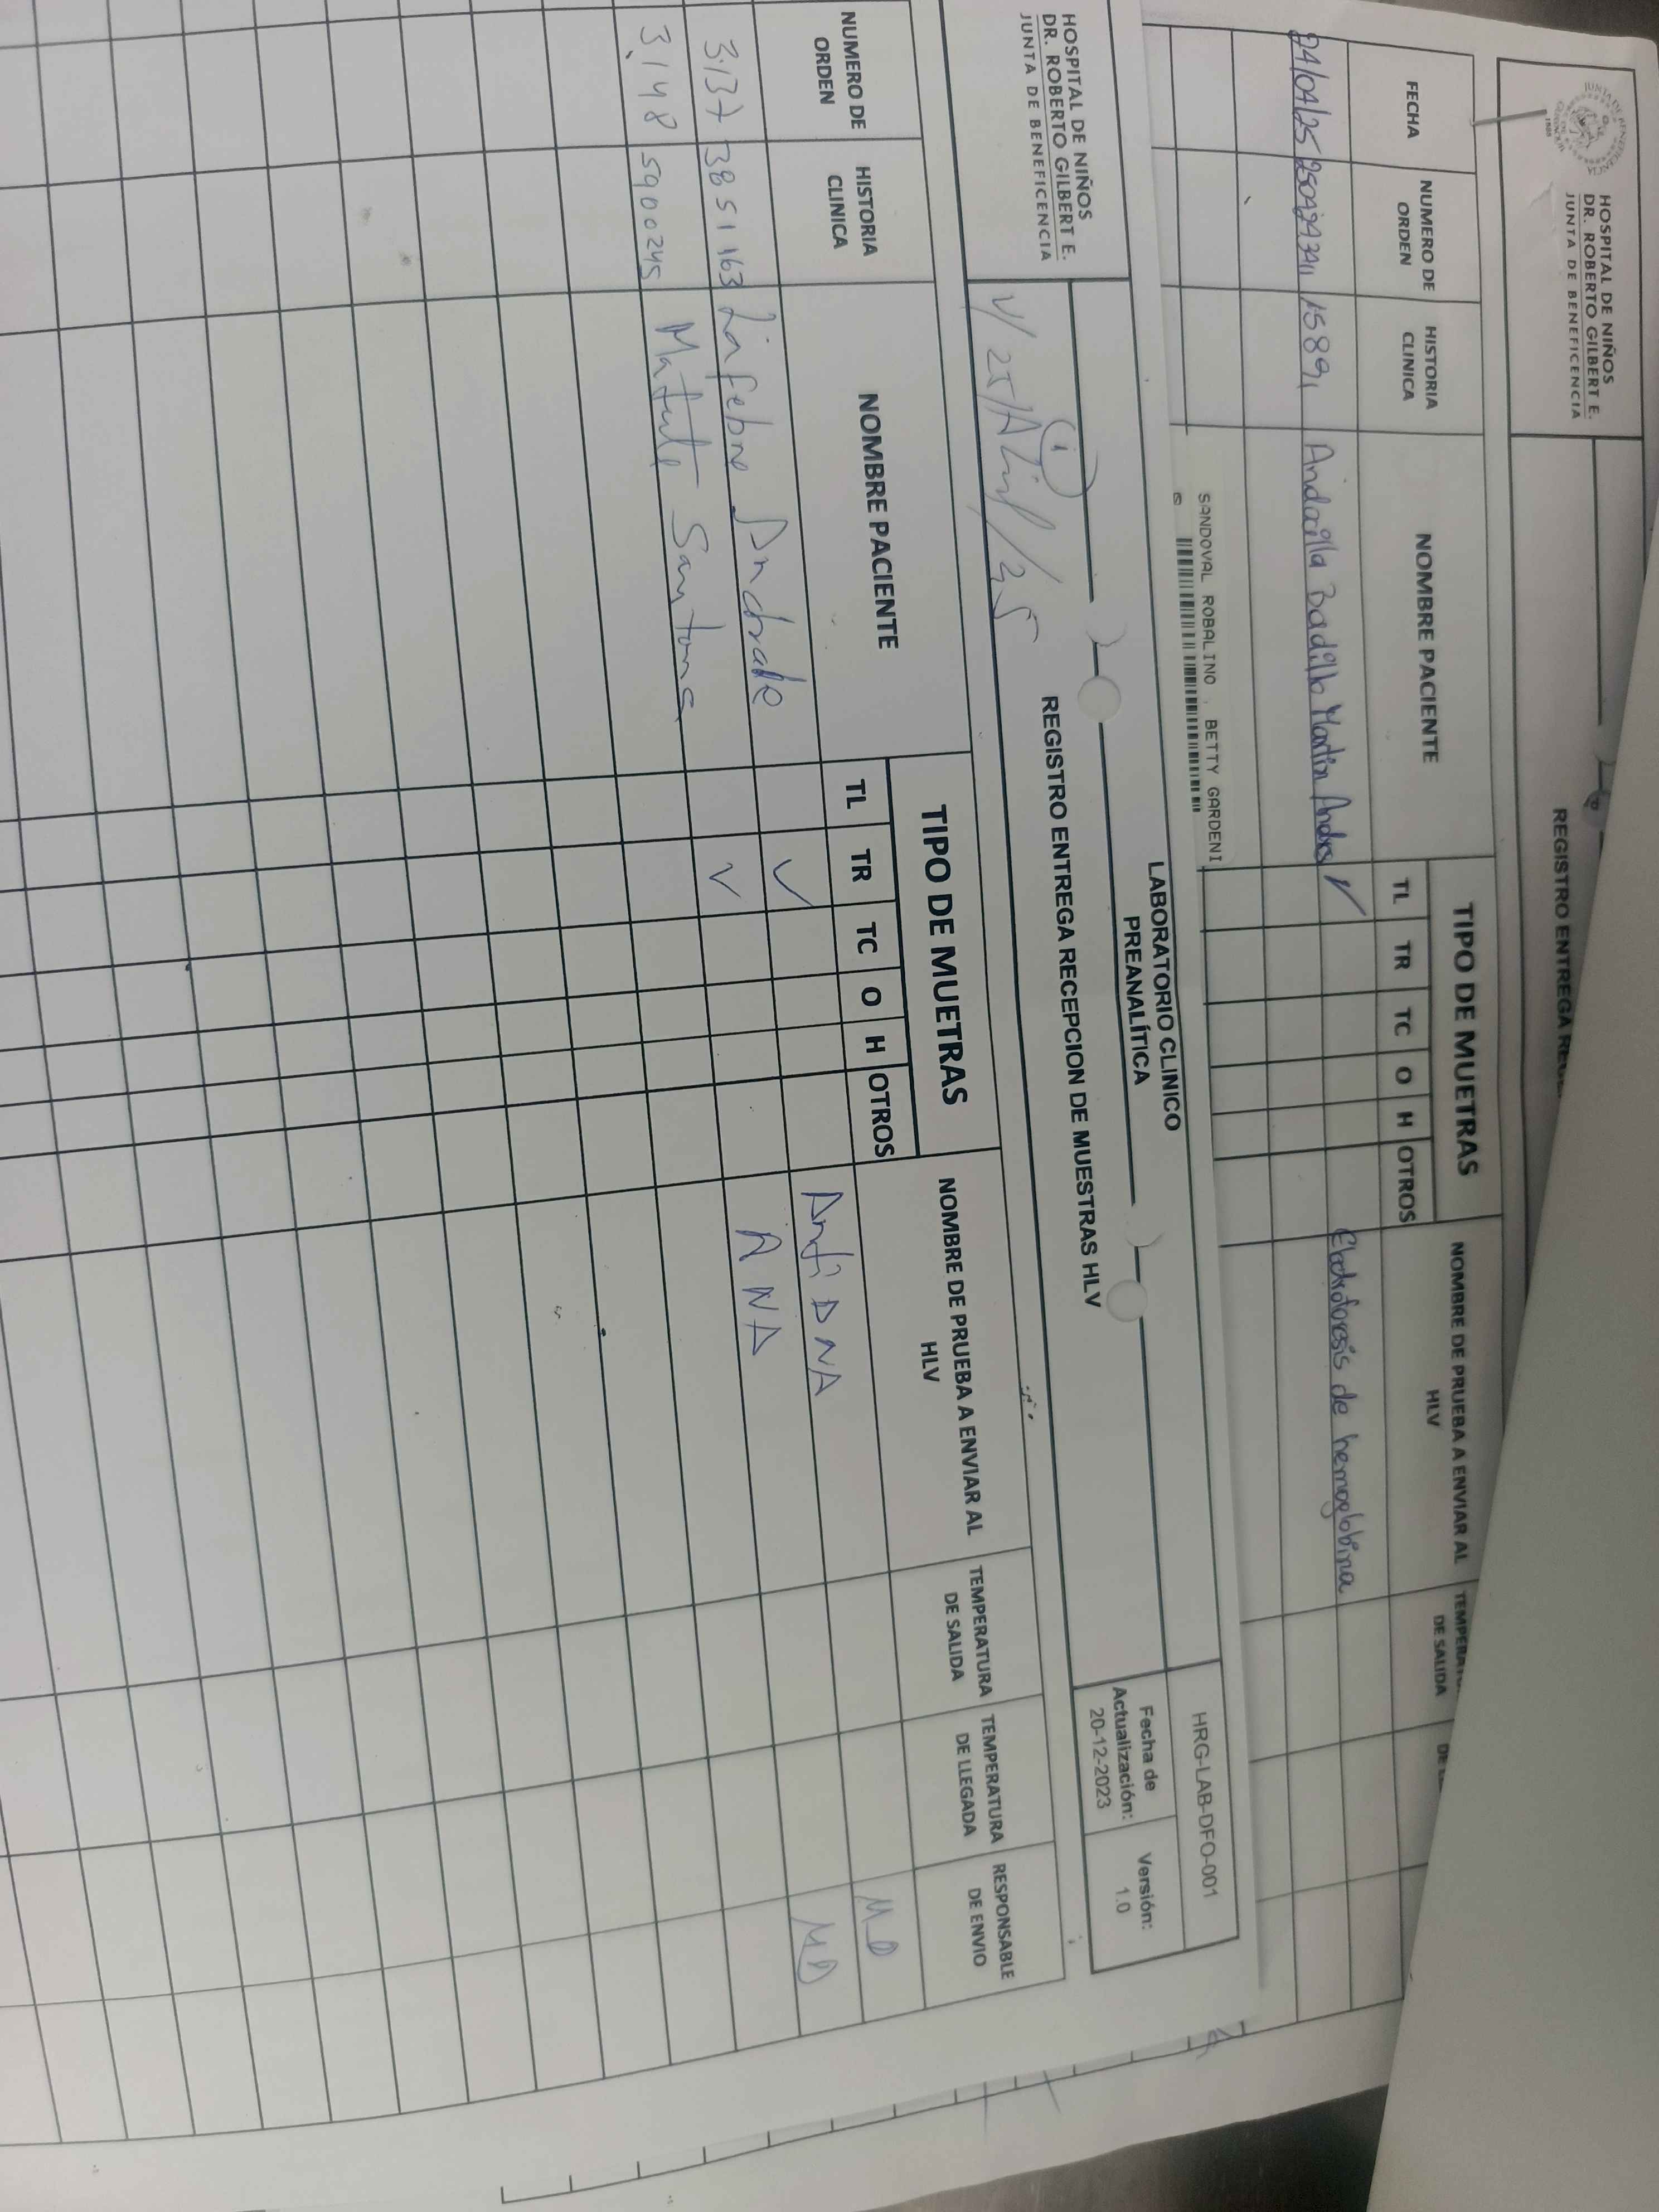 HOSPITAL DE NIÑOS
DR. ROBERTO GILBERT E.
JUNTA DE BENEFICENCIA
REGISTRO ENTREGA
FECHA
NUMERO DE
ORDEN
HISTORIA
CLINICA
NOMBRE PACIENTE
TIPO DE MUETRAS
TL TR TC O H OTROS
NOMBRE DE PRUEBA A ENVIAR AL
HLV
DE SALIDA
24/04/25 Badillo Martin Andres ✓ Electroforesis de hemoglobina
SANDOVAL ROBALINO . BETTY GARDENI
HOSPITAL DE NIÑOS
DR. ROBERTO GILBERT E.
JUNTA DE BENEFICENCIA
LABORATORIO CLINICO
PREANALÍTICA
REGISTRO ENTREGA RECEPCION DE MUESTRAS HLV
HRG-LAB-DFO-001
Fecha de
Actualización:
20-12-2023
Versión:
1.0
NUMERO DE
ORDEN
HISTORIA
CLINICA
NOMBRE PACIENTE
TIPO DE MUETRAS
TL TR TC O H OTROS
NOMBRE DE PRUEBA A ENVIAR AL
HLV
TEMPERATURA
DE SALIDA
TEMPERATURA
DE LLEGADA
RESPONSABLE
DE ENVIO
3137 3851163 Lafebre Andrade ✓ Anti DNA MD
3148 5900245 Matute Santana ✓ ANA MD